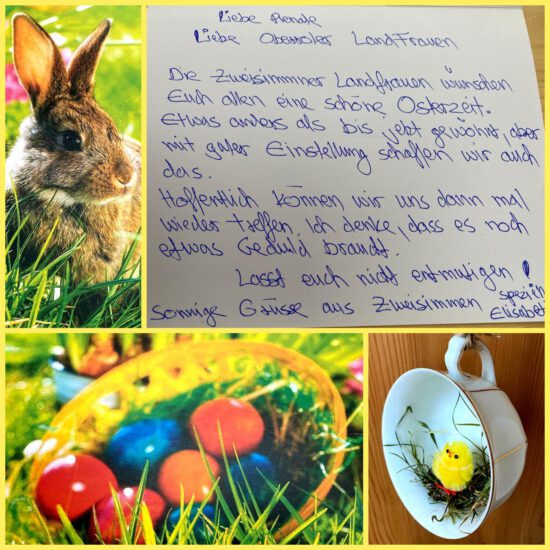 Liebe Renate
Liebe Obertoler LandFrauen
Die Zweisimmner Landfrauen wünschen
Euch allen eine schöne Osterzeit.
Etwas anders als bis jetzt gewöhnt, aber
mit guter Einstellung schaffen wir auch
das.
Hoffentlich können wir uns dann mal
wieder treffen. Ich denke, dass es noch
etwas Geduld braucht.
Lasst euch nicht entmutigen!
Sonnige Grüsse aus Zweisimmen
Elisabeth